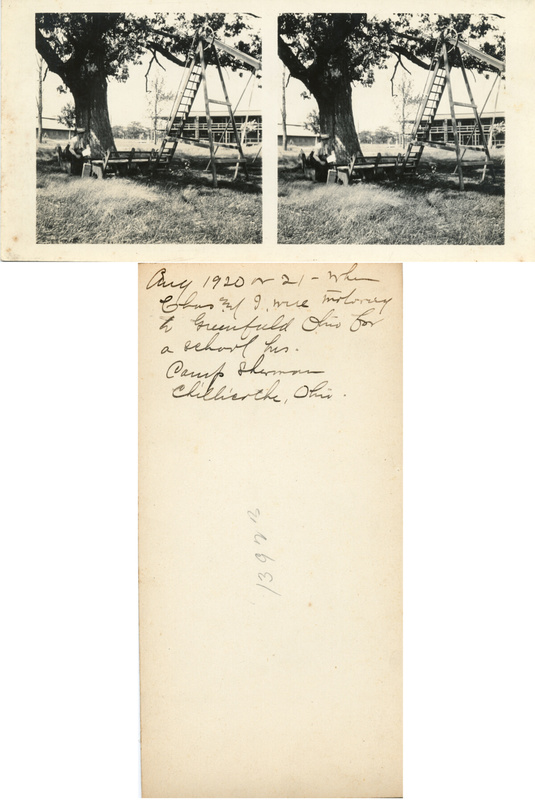 Aug 1920 or 21 - when
Chas & I were motoring
to Greenfield Ohio for
a school
Camp Sherman
Chillicothe, Ohio.
13922